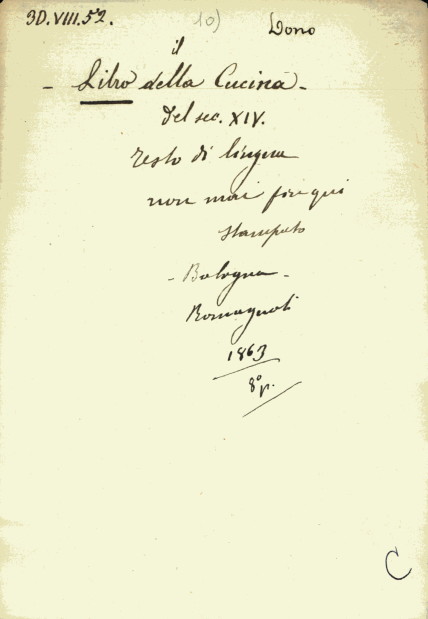 3D.VIII.52.
10)
Dono
il
- Libro della Cucina -
del sec. XIV.
Testo di lingua
non mai fin qui
stampato
- Bologna -
Romagnoli
1863
8° p.
C